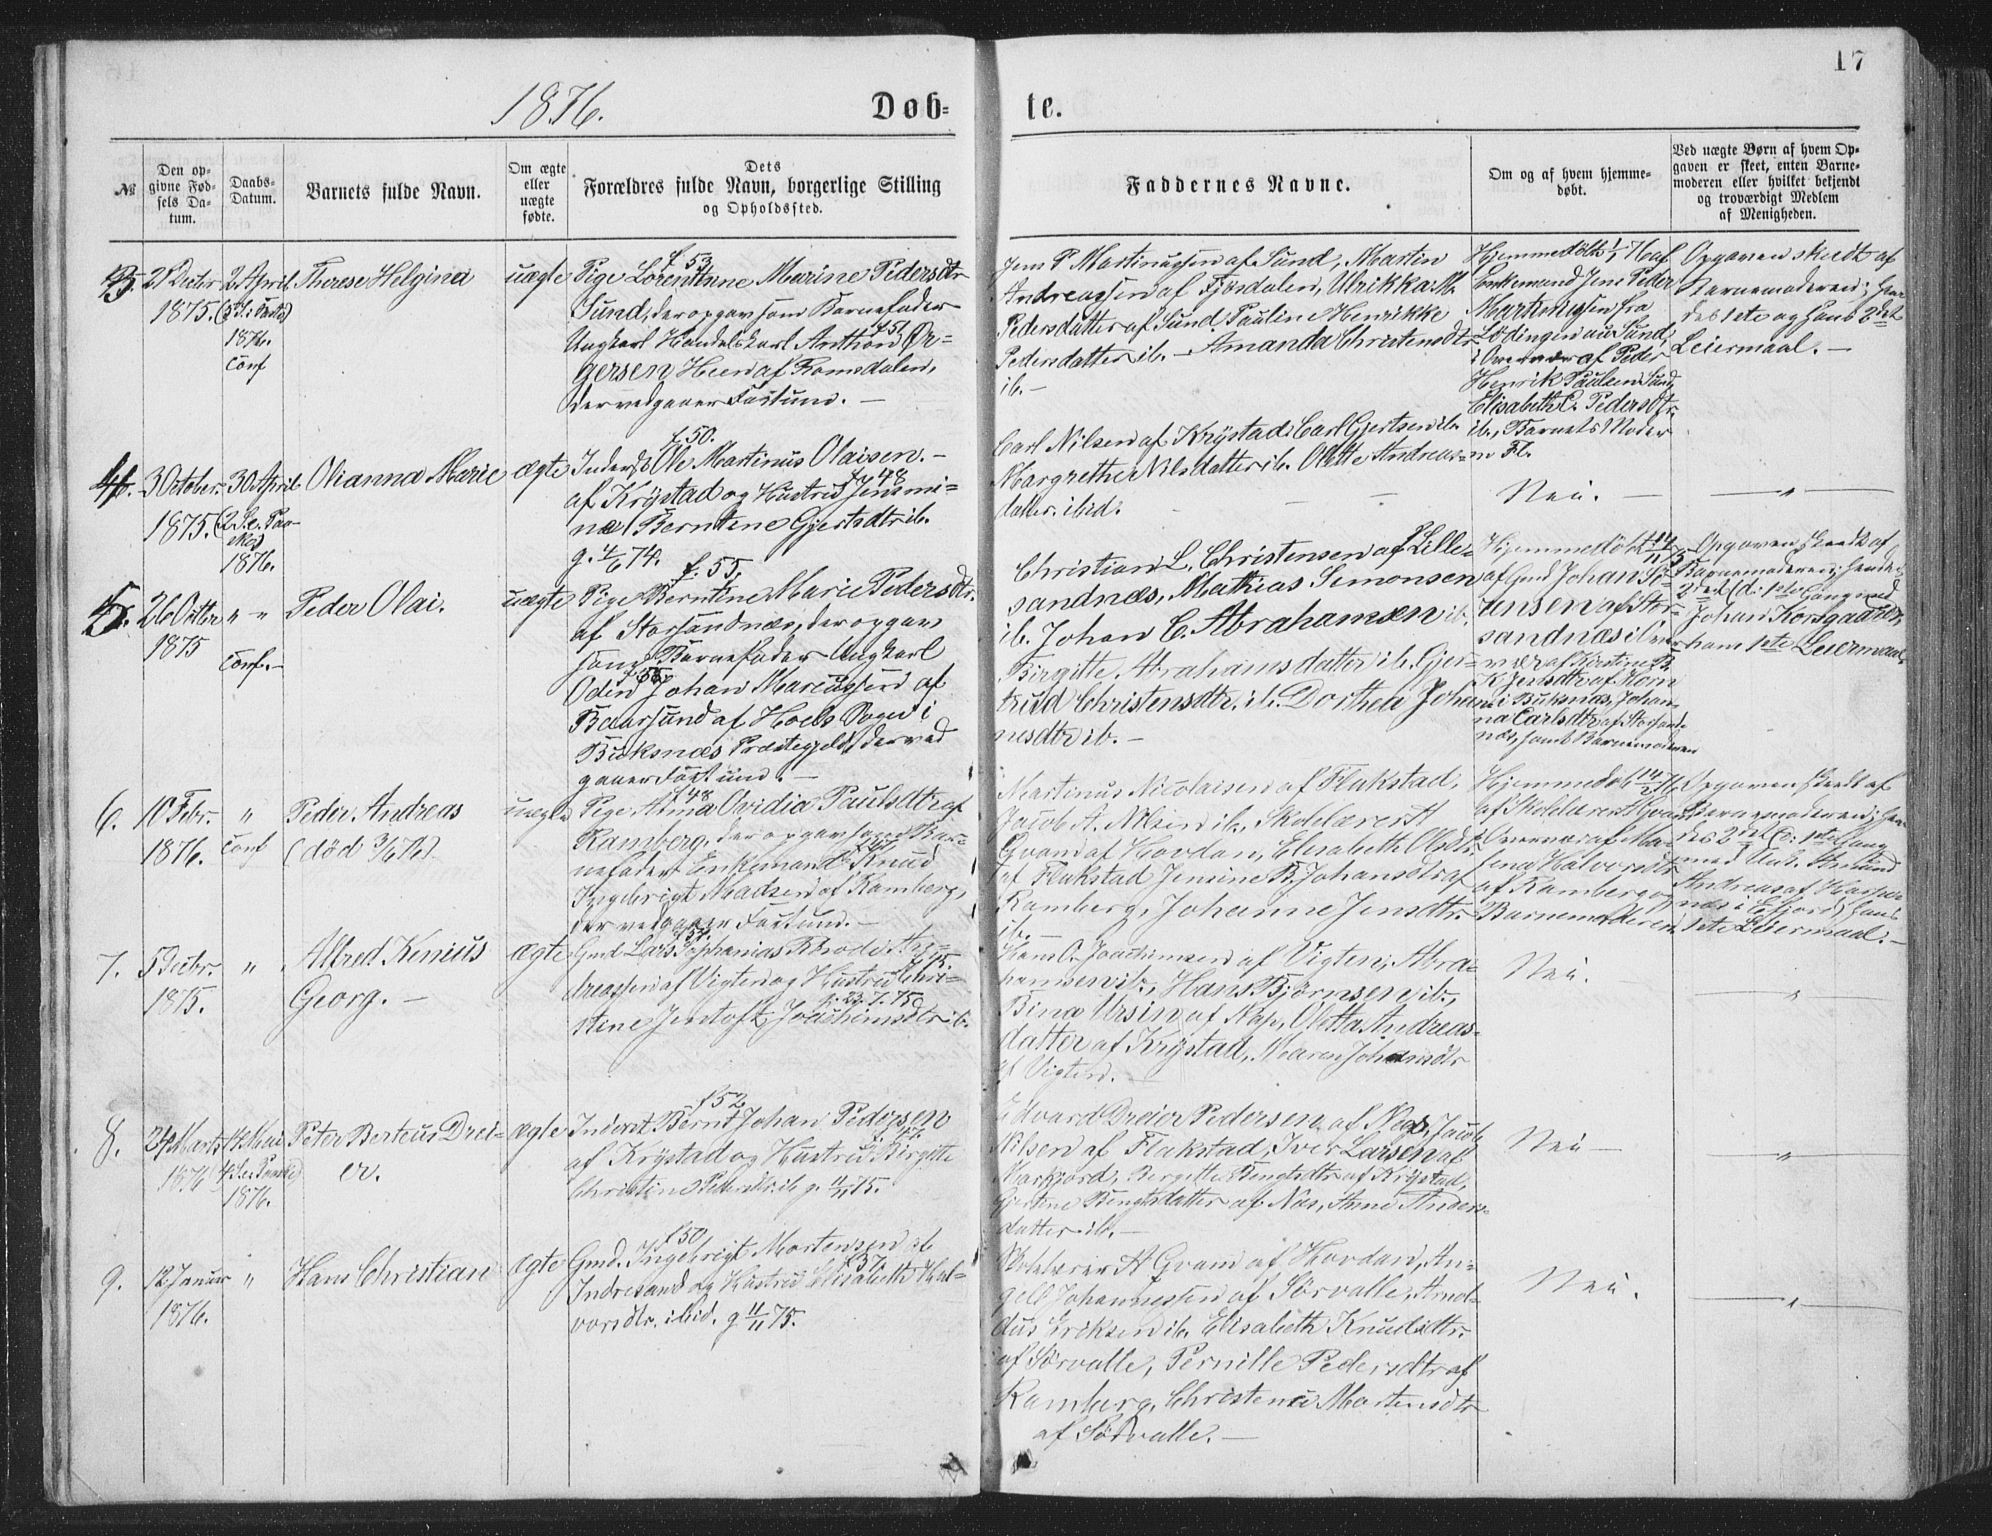 17
1876.
Døb-
te.
№
Den op-
givne Fød-
sels Da-
tum.
Daabs-
Datum.
Barnets fulde Navn.
Om ægte
eller
uægte
fødte.
Dets
Forældres fulde Navn, borgerlige Stilling
og Opholdssted.
Faddernes Navne.
Om og af hvem hjemme-
døbt.
Ved uægte Børn af hvem Op-
gaven er skeet, enten Barne-
moderen eller hvilket bekjendt
og troværdigt Medlem
af Menigheden.
21 Decbr
1875.
2 April
1876.
Conf
Therese Helgina
uægte
f. 53
Pige Lorentine Marine Pedersdtr
Sund, der opgav som Barnefader
f 51
Ungkarl Handelskarl Anthon
gersen Heen af Romsdalen,
der vedgaaer Farskab.
Jens P Martinussen af Sund, Martin
Andreassen af Fjøsdalen, Ulrikka M.
Pedersdatter af Sund, Pauline Henrikke
Pedersdatter ib. - Amanda Christensdtr
ib. -
Hjemmedöbt
Enkemand Jens Peder
Martinussen fra
Lödingen nu Sund,
af Peder
Henrik Paulsen Sund
Elisabeth C. Pedersdtr.
ib., Barnets Moder
m Fl.
Opgaven skeedt af
Barnemoderen;
des 1ste og hans 2det
Leiermaal. -
4.
3 October
1875.
30 April
1876.
Olianna Marie
ægte
f. 50.
Inderst Ole Martinus Olaisen. -
f 48
af Krystad og Hustru Jensmi-
næ Berntine Gjertsdtr ib.
g. 4/6 74.
Carl Nilsen af Krystad, Carl Gjertsen ib.
Margrethe Nilsdatter ib. Olette Andreas-
datter. ibid.
Nei. -
5.
26 Octbr
1875
" "
Conf. -
Peder Olai.
uægte
f. 55.
Pige Berntine Marie Pedersdtr.
af Storsandnæs, der opgav
som Barnefader Ungkarl
f 55
Odin Johan Marcussen af
Baarsund af Hols Sogn i
Buksnæs Præstegjeld, der ved
gaaer Farskab. -
Christian L. Christensen af Lille-
sandnæs, Mathias Simonsen
ib. Johan C. Abrahamsen ib.
Birgitte Abrahamsdatter ib. Gjer-
trud Christensdtr. ib. Dorthea Johan-
nesdtr ib. -
Hjemmedöbt
af Gmd Johan
ansen af Stor-
sandnæs i
vær af Kirstine B.
K. Jensdtr af Horn
i Buksnæs, Johan-
na Carlsdtr af Storsand-
næs, samt Barnemoderen
Opgaven skeedt af
Barnemoderen; hendes
2det (d: 1ste Gang med
Johan Korsgaard),
hans 1ste Leiermaal.
6.
10 Febr.
1876.
"
Conf
Peder Andreas
(död 3/6 76)
uægte
f 48
Pige Anna Ovidia Paulsdtr af
Ramberg, der opgav som Bar-
nefader Enkemand Knud
Ingebrigt Madsen af Ramberg,
der vedgaaer Farskab. -
Martinus Nicolaisen af Flakstad,
Jacob A. Nilsen ib., Skolelærer A
Gvam af Hovdan, Elisabeth Olsdtr.
af Flakstad, Jensine B. Johansdtr af
Ramberg, Johanne Jensdtr.
ib. -
Hjemmedöbt 14/2 76
af Skolelærer
Overvær af Ma-
lena Halvorsdtr
af Ramberg og
Barnemoderen
Opgaven skeedt af
Barnemoderen; hen-
des 2det (d: 1ste Gang
med Ungk.
Andreas af
næs i Efjord) hans
1ste Leiermaal. -
7.
5 Decbr.
1875.
"
Alfred Kenius
Georg. -
ægte
Gmd Lars Sophanias Rhode An-
dreassen af Vigten og Hustru Chri-
g. 23.7.75
stine Jentoft Joachimsdtr ib.
Hans C. Joachimsen af Vigten, Abra-
hamsen ib., Hans Björnsen ib.,
Bina Ursin af Nap, Oletta Andreas-
datter af Krystad, Maren Johansdtr
af Vigten. -
Nei.
"
8.
24 Marts
1876
14 Mai
1876.
Peter Berteus Drei-
er.
ægte
f 52
Inderst Bernt Johan Pedersen
af Krystad og Hustru Birgitte
Christine Pedersdtr. ib g. 11/11 75.
Edvard Dreier Pedersen af Næs, Jacob
Nilsen af Flakstad, Iver Larsen af
Markjord, Birgitte Bengtsdtr af Krystad,
Gjertine Bengtsdatter af Næs, Anne Anders-
datter ib. -
Nei -
"
9.
12 Januar
1876.
"
Hans Christian
ægte
f 50
Gmd. Ingebrigt Mortensen af
f 37
Indresand og Hustru Elisabeth Hal-
vorsdtr. ibid. g 11/11 75.
Skolelærer A Gvam af Hovdan, An-
gell Johannessen af Sörvalle, Arnol-
dus Eriksen ib. Elisabeth Knudsdtr.
af Sörvalle, Pernille Pedersdtr af
Ramberg, Christence Mortensdtr
af Sörvalle. -
Nei.
"